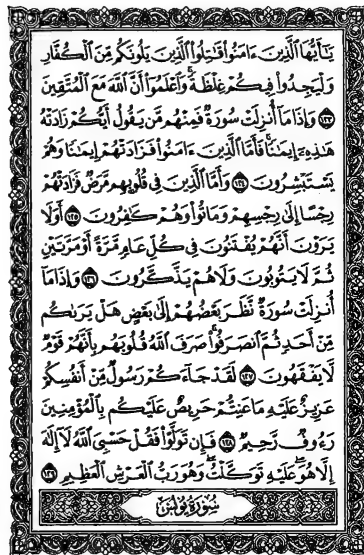 يَٰٓأَيُّهَا ٱلَّذِينَ ءَامَنُوا۟ قَٰتِلُوا۟ ٱلَّذِينَ يَلُونَكُم مِّنَ ٱلْكُفَّارِ
وَلْيَجِدُوا۟ فِيكُمْ غِلْظَةً وَٱعْلَمُوٓا۟ أَنَّ ٱللَّهَ مَعَ ٱلْمُتَّقِينَ
١٢٣ وَإِذَا مَآ أُنزِلَتْ سُورَةٌ فَمِنْهُم مَّن يَقُولُ أَيُّكُمْ زَادَتْهُ
هَٰذِهِۦٓ إِيمَٰنًا فَأَمَّا ٱلَّذِينَ ءَامَنُوا۟ فَزَادَتْهُمْ إِيمَٰنًا وَهُمْ
يَسْتَبْشِرُونَ ١٢٤ وَأَمَّا ٱلَّذِينَ فِى قُلُوبِهِم مَّرَضٌ فَزَادَتْهُمْ
رِجْسًا إِلَىٰ رِجْسِهِمْ وَمَاتُوا۟ وَهُمْ كَٰفِرُونَ ١٢٥ أَوَلَا
يَرَوْنَ أَنَّهُمْ يُفْتَنُونَ فِى كُلِّ عَامٍ مَّرَّةً أَوْ مَرَّتَيْنِ
ثُمَّ لَا يَتُوبُونَ وَلَا هُمْ يَذَّكَّرُونَ ١٢٦ وَإِذَا مَآ
أُنزِلَتْ سُورَةٌ نَّظَرَ بَعْضُهُمْ إِلَىٰ بَعْضٍ هَلْ يَرَىٰكُم
مِّنْ أَحَدٍ ثُمَّ ٱنصَرَفُوا۟ صَرَفَ ٱللَّهُ قُلُوبَهُم بِأَنَّهُمْ قَوْمٌ
لَّا يَفْقَهُونَ ١٢٧ لَقَدْ جَآءَكُمْ رَسُولٌ مِّنْ أَنفُسِكُمْ
عَزِيزٌ عَلَيْهِ مَا عَنِتُّمْ حَرِيصٌ عَلَيْكُم بِٱلْمُؤْمِنِينَ
رَءُوفٌ رَّحِيمٌ ١٢٨ فَإِن تَوَلَّوْا۟ فَقُلْ حَسْبِىَ ٱللَّهُ لَآ إِلَٰهَ
إِلَّا هُوَ عَلَيْهِ تَوَكَّلْتُ وَهُوَ رَبُّ ٱلْعَرْشِ ٱلْعَظِيمِ ١٢٩
سُورَةُ يُونُسَ